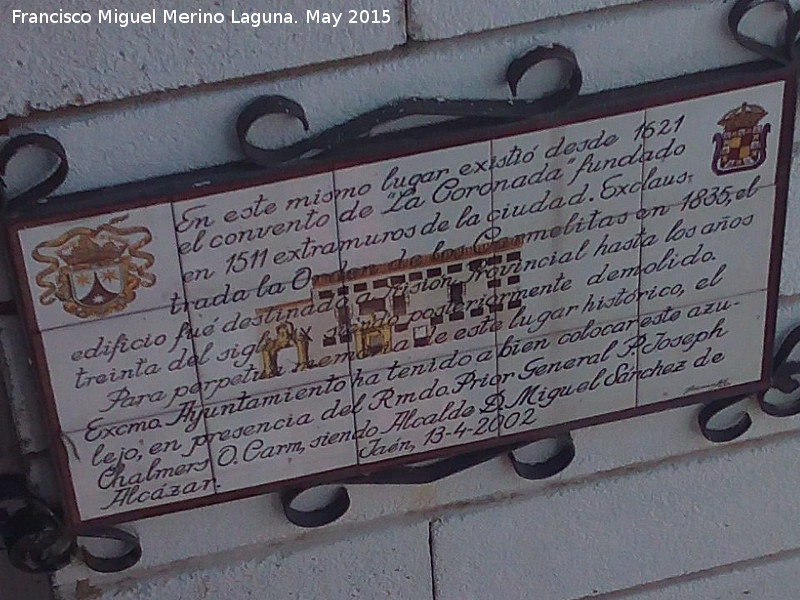 Francisco Miguel Merino Laguna. May 2015
En este mismo lugar existió desde 1621
el convento de "La Coronada" fundado
en 1511 extramuros de la ciudad. Exclaus-
trada la Orden de los Carmelitas en 1835, el
edificio fué destinado a prisión provincial hasta los años
treinta del siglo XX siendo posteriormente demolido.
Para perpetua memoria de este lugar histórico, el
Excmo. Ayuntamiento ha tenido a bien colocar este azu-
lejo, en presencia del Rmdo. Prior General P. Joseph
Chalmers O. Carm, siendo Alcalde D. Miguel Sánchez de
Alcázar.
Jaén, 13-4-2002